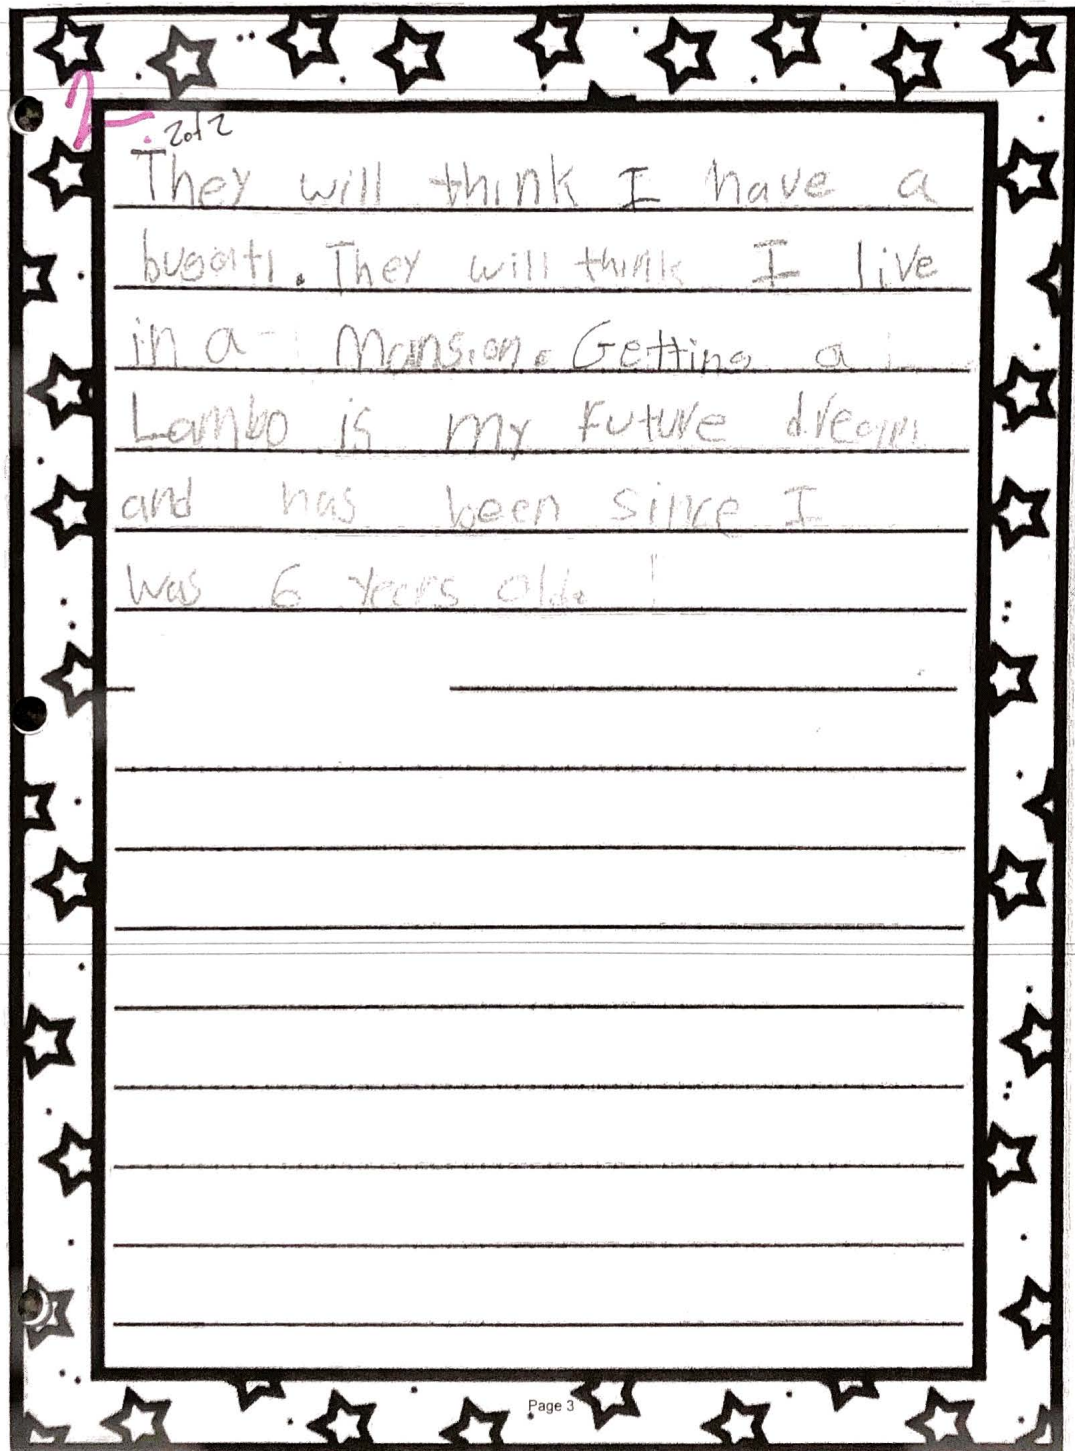 2.
2 of 2
They will think I have a
bugati. They will think I live
in a Mansion. Getting a
Lambo is my Future dream
and has been since I
was 6 years old. !
Page 3